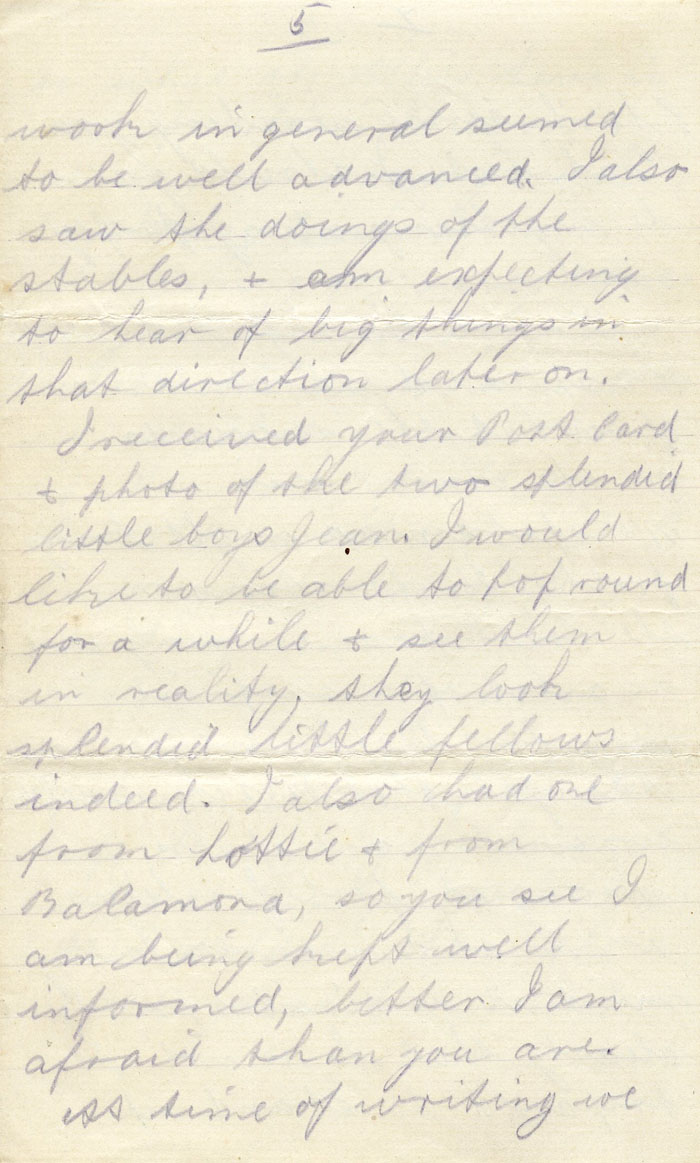 5
work in general seemed
to be well advanced. I also
saw the doings of the
stables, & am expecting
to hear of big things in
that direction later on.
I received your Post Card
& photo of the two splendid
little boys Jean. I would
like to be able to pop round
for a while & see them
in reality, they look
splendid little fellows
indeed. I also had one
from Lottie & from
Balamona, so you see I
am being kept well
informed, better I am
afraid than you are.
At time of writing we